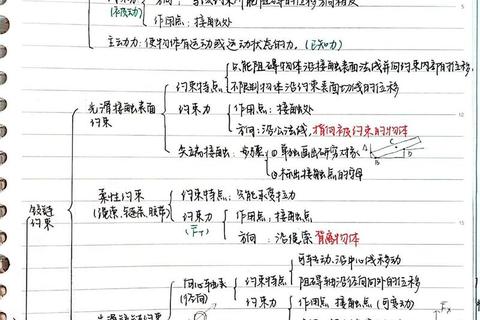 作用点：接触处
主动力：使物体有运动或运动状态的力。(已知力)
只能阻碍物体沿接触表面法线并向约束内部的位移
约束特点
不限制物体沿约束表面切线的位移
光滑接触表面约束
约束力
作用点：接触处
方向：沿公法线，指向被约束的物体
尖端接触：步骤
①单独画出研究对象
A B C D
②标出接触点的字母
柔性约束
(绳索、链条、胶带)
约束特点：只能承受拉力
约束力
(F_T)
作用点：接触点
方向：沿绳索背离物体
铰链约束
可转动、沿中心线移动
约束特点
阻碍轴沿径向向外的位移
约束力
作用点：接触点(可变动)
F_x